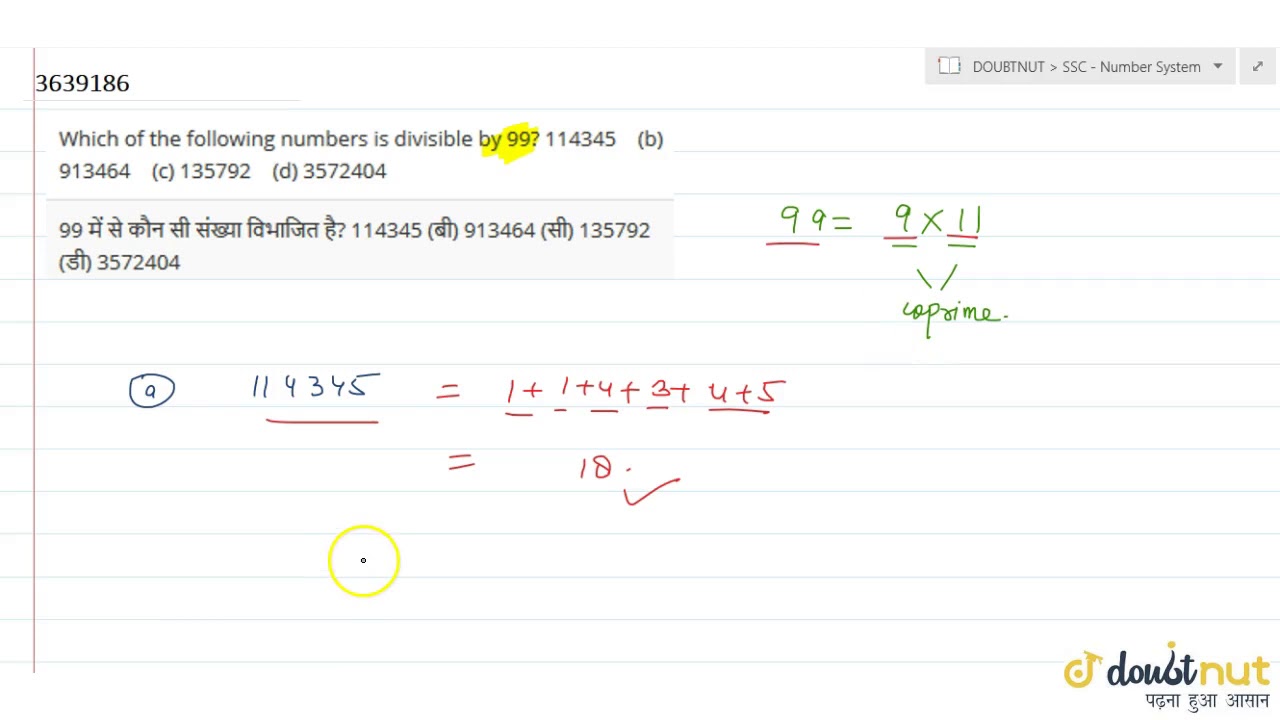 DOUBTNUT > SSC - Number System
3639186
Which of the following numbers is divisible by 99? 114345 (b)
913464 (c) 135792 (d) 3572404
99 में से कौन सी संख्या विभाजित है? 114345 (बी) 913464 (सी) 135792
(डी) 3572404
99 = 9 X 11
coprime.
a 114345 = 1 + 1 + 4 + 3 + 4 + 5
= 18.
doubtnut
पढ़ना हुआ आसान